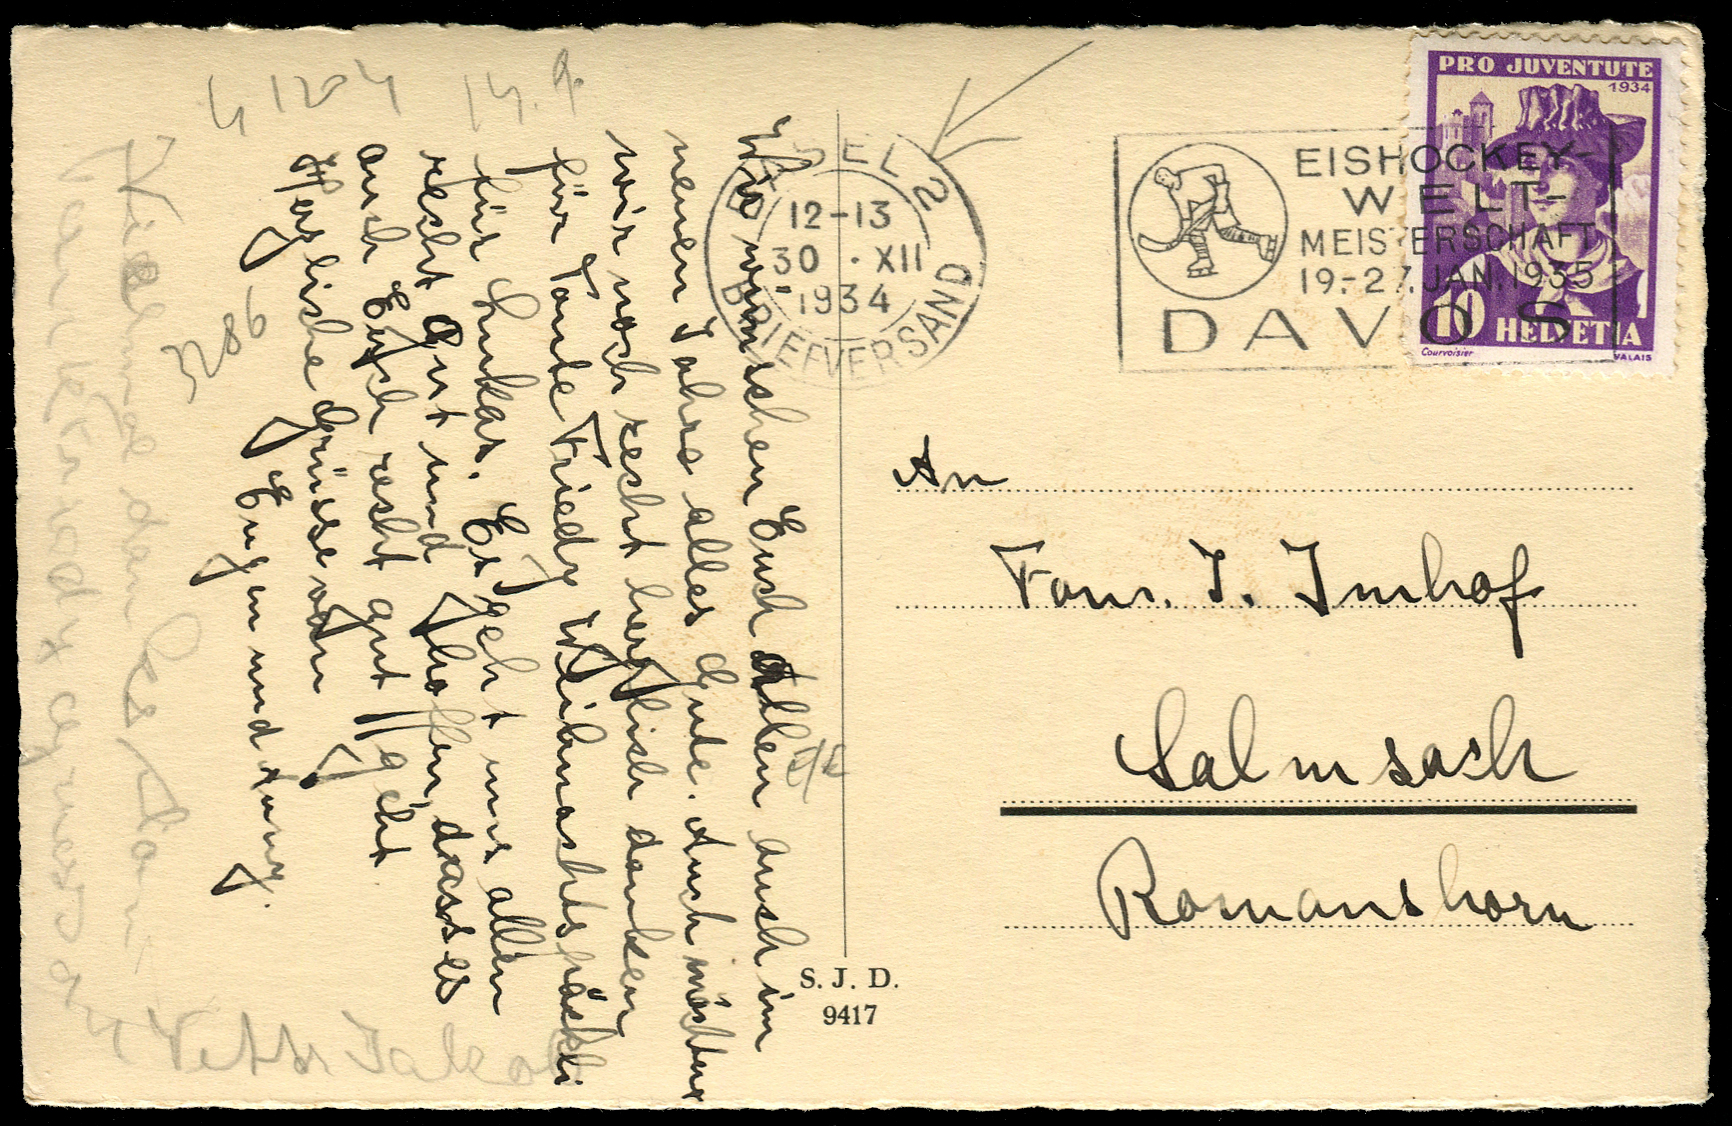 PRO JUVENTUTE
1934
10
HELVETIA
Courvoisier
VALAIS
BASEL 2
12-13
30.XII
-1934
BRIEFVERSAND
EISHOCKEY-
WELT-
MEISTERSCHAFT
19.-27. JAN. 1935
DAVOS
Wir wünschen Euch allen auch im
neuen Jahre alles Gute. Auch möchten
wir noch recht herzlich danken
für Tante Friedy Weihnachtspäckli
für Lukas. Es geht uns allen
recht gut und hoffen, dass es
auch Euch recht gut geht
Herzliche Grüsse von
Eugen und
An
Fam. J. Imhof
Salmsach
Romanshorn
S. J. D.
9417